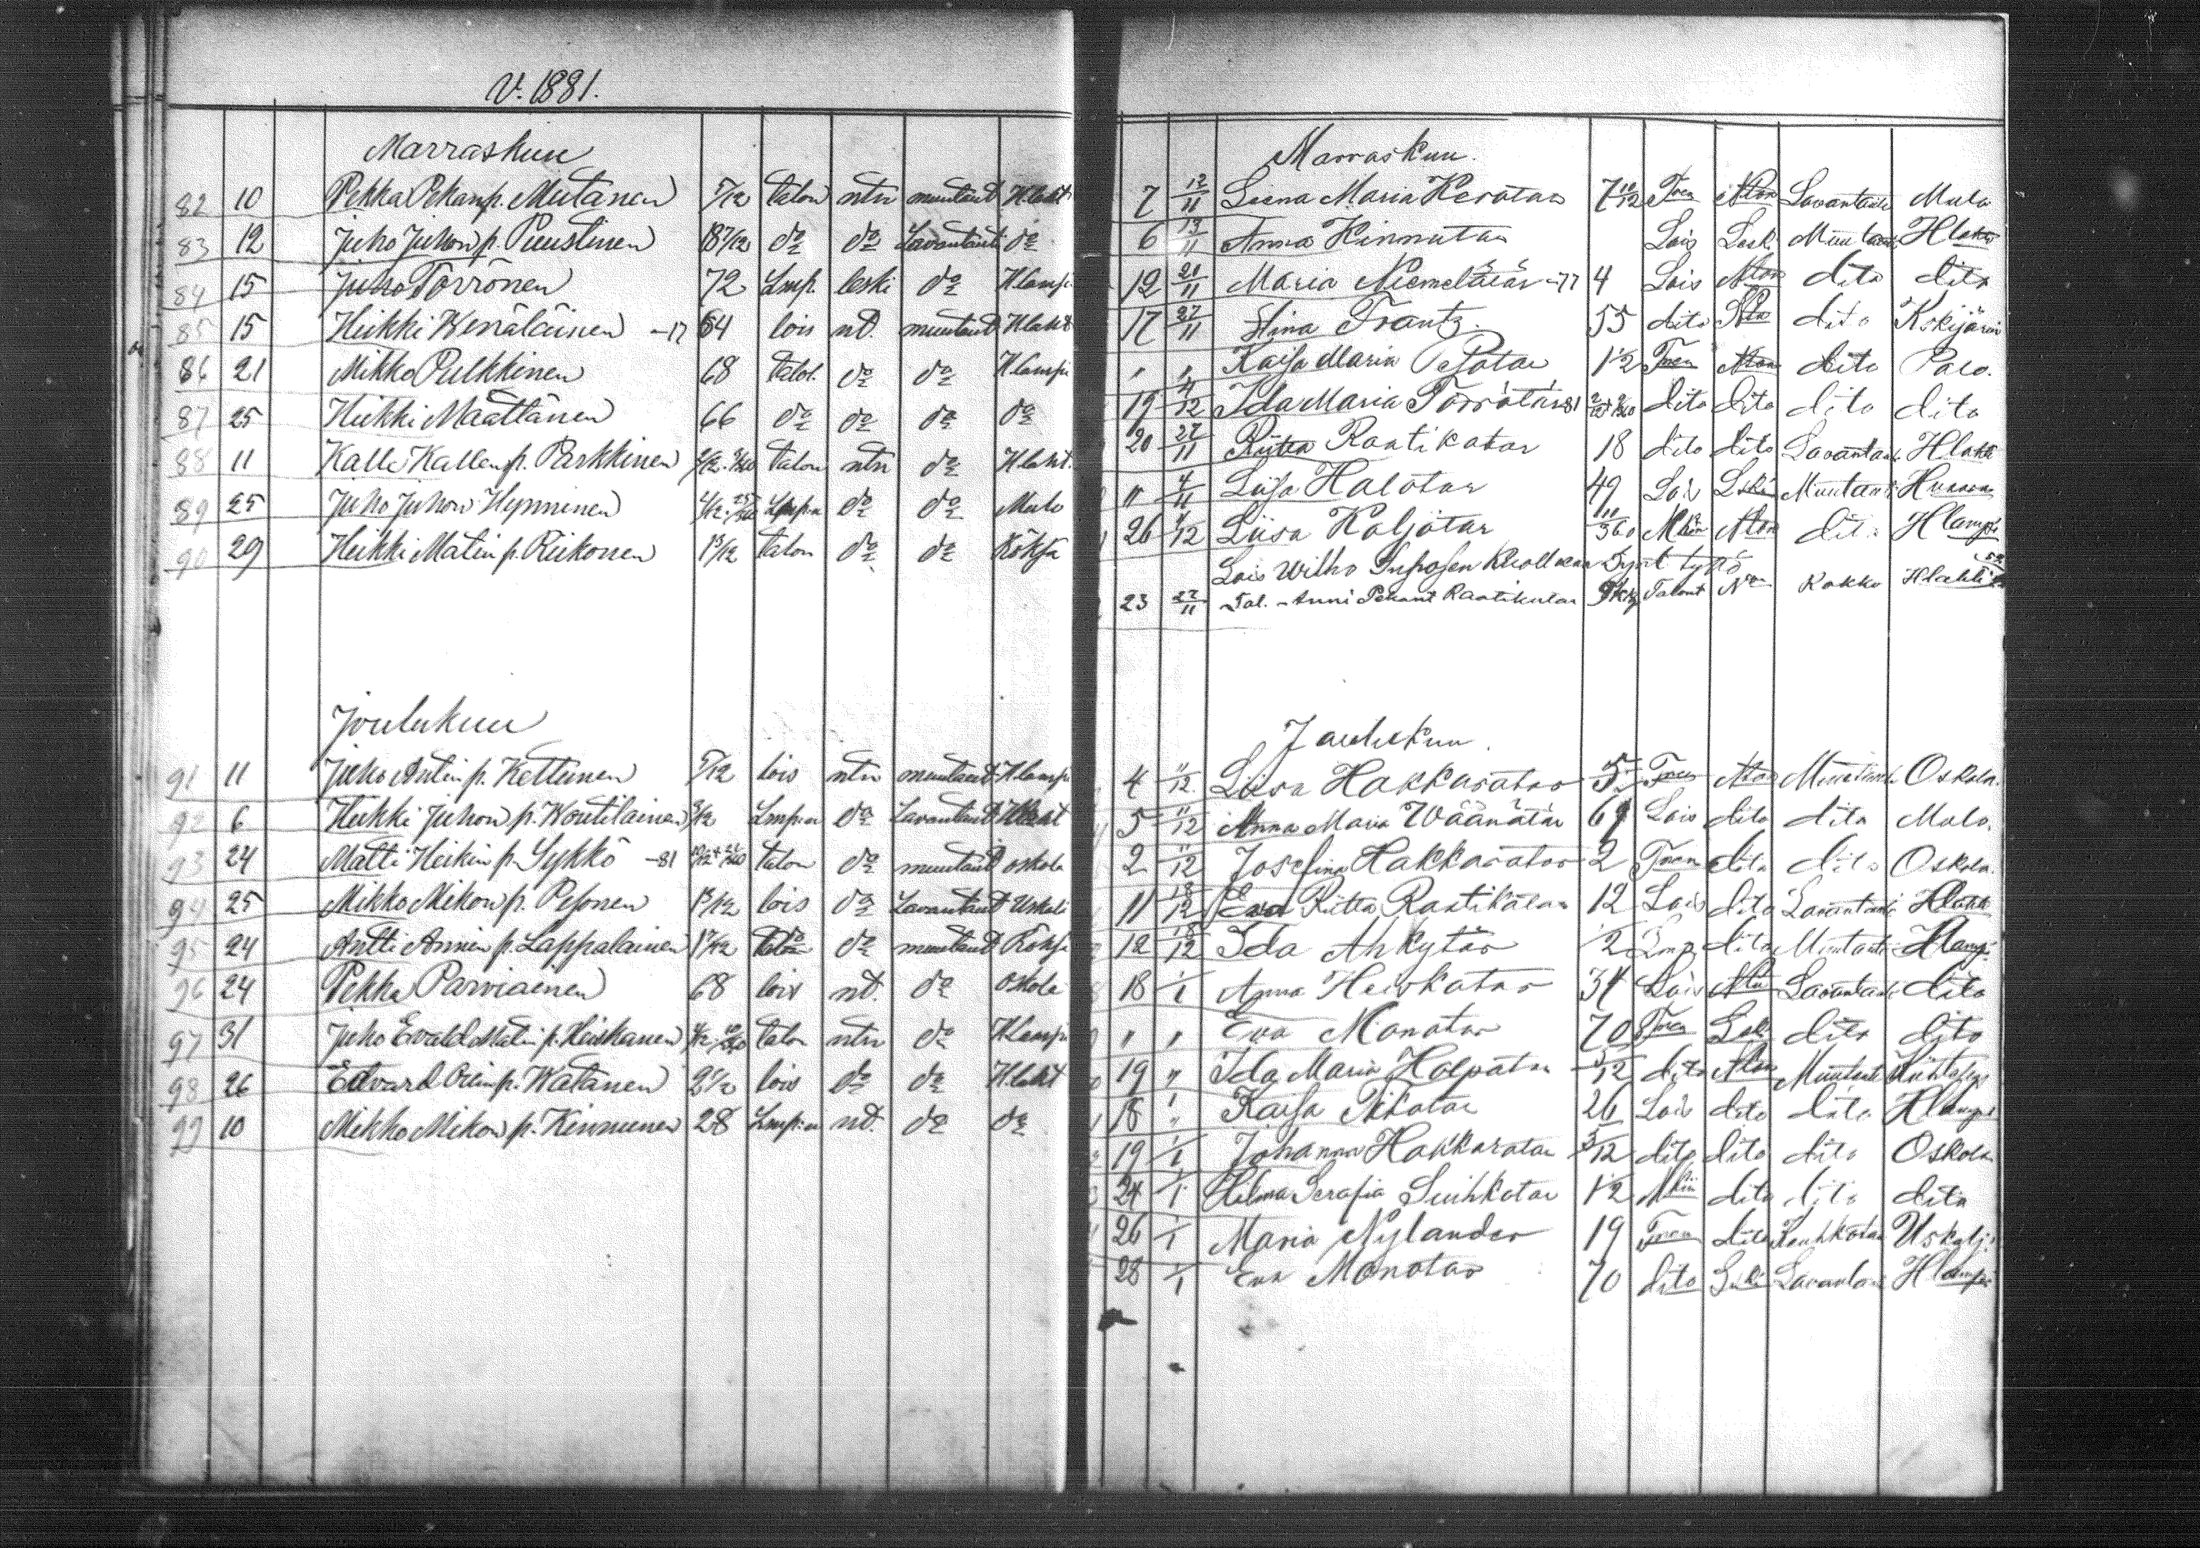 V. 1881.
Marraskuu
82 10 Pekka Pekanp. Mutanen 5/12 talon ntn muutaut Hlaht
83 12 Juho Juhon p. Puustinen 18 7/12 do do Lavantaut do
84 15 Juho Törrönen 72 Lmp. leski do Hlamp.
85 15 Heikki Wenäläinen -17 64 lois nt. muutaut Hlaht
86 21 Mikko Pulkkinen 68 talol. do do Hlampi
87 25 Heikki Määttänen 66 do do do do
88 11 Kalle Kallen p. Parkkinen talon ntn do Hlaht.
89 25 Juho Juhon Hynninen Lmp:n do do Mulo
90 29 Heikki Matin p. Riikonen 1 3/12 talon do do Köksä
Joulukuu
91 11 Juho Antin p. Kettunen 5/12 lois ntn muutaut Hlampi
92 6 Heikki Juhon p. Kontilainen 3/12 Lmp:n do Lavantaut Hlaht
93 24 Matti Heikin p. Sykkö -81 talon do muutaut Oskola
94 25 Mikko Mikon p. Pesonen 1 3/12 lois do Lavantaut Uskali
95 24 Antti Annin p. Lappalainen do muutaut Köksä
96 24 Pekka Parviainen 68 lois nt. do Oskola
97 31 Juho Evald Matin p. Heiskanen talon ntn do Hlampi
98 26 Edvard Ollin p. Watanen lois do do Hlaht
99 10 Mikko Mikon p. Kinnunen 28 Lmp:n nt. do do
Marraskuu.
7 12/11 Leena Maria Kerätär 7 10/12 Tren Nton Lavantauti Mulo
6 13/11 Anna Kinnutar Lois Lesk. Muutaut Hlahti
12 20/11 Maria Niemelätär -77 4 Lois Nton dito dito
17 27/11 Stina Frantz. 55 dito dito Kskijärvi
" " Kaisa Maria Pesotar 1 1/2 Tren Nton dito Palo.
19 4/12 Ida Maria Törrötär 81 dito dito dito dito
20 27/11 Riitta Raatikatar 18 dito dito Lavantaut Hlahti
" 4/11 Liisa Halotar 49 Lois Leski Muutaut
26 4/12 Liisa Koljotar 11/360 Mkin Nton dito Hlampi
Lois Wilho Tuposen kuolleena synt tyttö
23 27/11 Tal. Anni Pekant Raatikatar Talont Kokko Hlahti
Joulukuu.
4 11/12 Liisa Hakkaratar Tren Nton Muutauti Oskola.
5 11/12 Anna Maria Wäänätär 69 Lois dito dito Mulo.
2 11/12 Josefina Hakkaratar 2 Tren dito dito Oskola.
11 18/12 Eva Riitta Raatikatar 12 Lois dito Lavantauti Hlahti
12 18/12 Ida Ahkytär 1/2 Lmp dito Muutauti Hlampi
18 1/1 Anna Heiskatar 34 Lois Lavantauti dito
" " Eva Monotar 70 Tren Leski dito dito
19 " Ida Maria Holpatar 5/12 dito Nton Muutauti Kiihtelys
18 " Kaisa Pikatar 26 Lois dito dito Hlampi
19 1/1 Johanna Hakkaratar 3/12 dito dito dito Oskola
24 1/1 Helma Serafia Suihkotar 1 1/2 Mkin dito dito dito
26 1/1 Maria Nylander 19 Tren dito Keuhkotau Uskali
28 1/1 Eva Monotar 70 dito Leski Lavantaut Hlampi